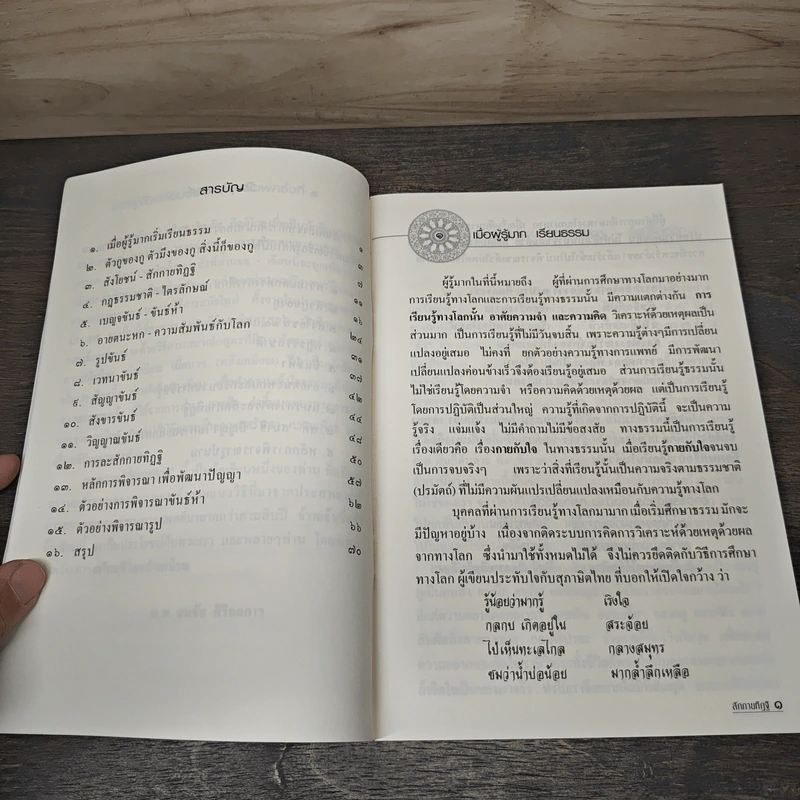 สารบัญ
๑. เมื่อผู้รู้มากเริ่มเรียนธรรม ๑
๒. ตัวกูของกู ตัวมึงของกู สิ่งนี้ก็ของกู ๓
๓. สังโยชน์ - สักกายทิฏฐิ ๗
๔. กฎธรรมชาติ - ไตรลักษณ์ ๑๑
๕. เบญจขันธ์ - ขันธ์ห้า ๑๖
๖. อายตนะหก - ความสัมพันธ์กับโลก ๒๔
๗. รูปขันธ์ ๓๑
๘. เวทนาขันธ์ ๓๗
๙. สัญญาขันธ์ ๔๒
๑๐. สังขารขันธ์ ๔๔
๑๑. วิญญาณขันธ์ ๔๘
๑๒. การละสักกายทิฏฐิ ๕๐
๑๓. หลักการพิจารณา เพื่อพัฒนาปัญญา ๕๗
๑๔. ตัวอย่างการพิจารณาขันธ์ห้า ๖๒
๑๕. ตัวอย่างพิจารณารูป ๖๖
๑๖. สรุป ๗๐
๑ เมื่อผู้รู้มาก เรียนธรรม
ผู้รู้มากในที่นี้หมายถึง ผู้ที่ผ่านการศึกษาทางโลกมาอย่างมาก
การเรียนรู้ทางโลกและการเรียนรู้ทางธรรมนั้น มีความแตกต่างกัน การ
เรียนรู้ทางโลกนั้น อาศัยความจำ และความคิด วิเคราะห์ด้วยเหตุผลเป็น
ส่วนมาก เป็นการเรียนรู้ที่ไม่มีวันจบสิ้น เพราะความรู้ต่างๆมีการเปลี่ยน
แปลงอยู่เสมอ ไม่คงที่ ยกตัวอย่างความรู้ทางการแพทย์ มีการพัฒนา
เปลี่ยนแปลงค่อนข้างเร็ว จึงต้องเรียนรู้อยู่เสมอ ส่วนการเรียนรู้ธรรมนั้น
ไม่ใช่เรียนรู้โดยความจำ หรือความคิดด้วยเหตุด้วยผล แต่เป็นการเรียนรู้
โดยการปฏิบัติเป็นส่วนใหญ่ ความรู้ที่เกิดจากการปฏิบัตินี้ จะเป็นความ
รู้จริง แจ่มแจ้ง ไม่มีคำถามไม่มีข้อสงสัย ทางธรรมนี้เป็นการเรียนรู้
เรื่องเดียวคือ เรื่องกายกับใจ ในทางธรรมนั้น เมื่อเรียนรู้กายกับใจจนจบ
เป็นการจบจริงๆ เพราะว่าสิ่งที่เรียนรู้นั้นเป็นความจริงตามธรรมชาติ
(ปรมัตถ์) ที่ไม่มีความผันแปรเปลี่ยนแปลงเหมือนกับความรู้ทางโลก
บุคคลที่ผ่านการเรียนรู้ทางโลกมามาก เมื่อเริ่มศึกษาธรรม มักจะ
มีปัญหาอยู่บ้าง เนื่องจากติดระบบการคิดการวิเคราะห์ด้วยเหตุด้วยผล
จากทางโลก ซึ่งนำมาใช้ทั้งหมดไม่ได้ จึงไม่ควรยึดติดกับวิธีการศึกษา
ทางโลก ผู้เขียนประทับใจกับสุภาษิตไทย ที่บอกให้เปิดใจกว้าง ว่า
รู้น้อยว่ามากรู้ เริงใจ
กลกบ เกิดอยู่ใน สระจ้อย
ไป่เห็นทะเลไกล กลางสมุทร
ชมว่าน้ำบ่อน้อย มากล้ำลึกเหลือ
สักกายทิฏฐิ ๑